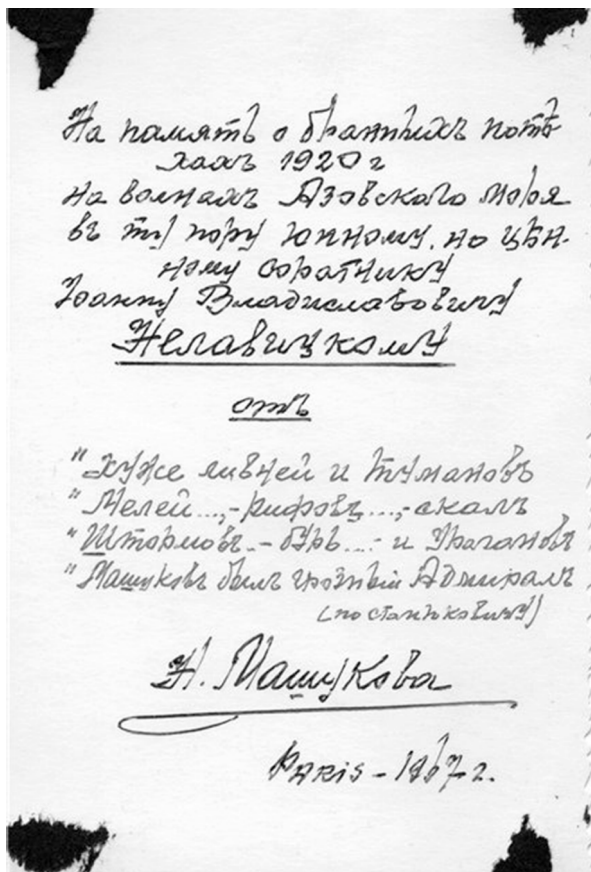 На память о бранныхъ потѣ-
хахъ 1920 г
на волнахъ Азовскаго моря
въ ту пору юнному, но цѣн-
ному соратнику
Іоанну Владиславовичу
Нелавицкому
отъ
"Хуже ливней и тумановъ
"Мелей...,-рифовъ...,-скалъ
"Штормовъ..-бурь...- и Урагановъ
"Машуковъ былъ грозный Адмиралъ
(по станюковичу)
Н. Машукова
Paris - 1967 г.